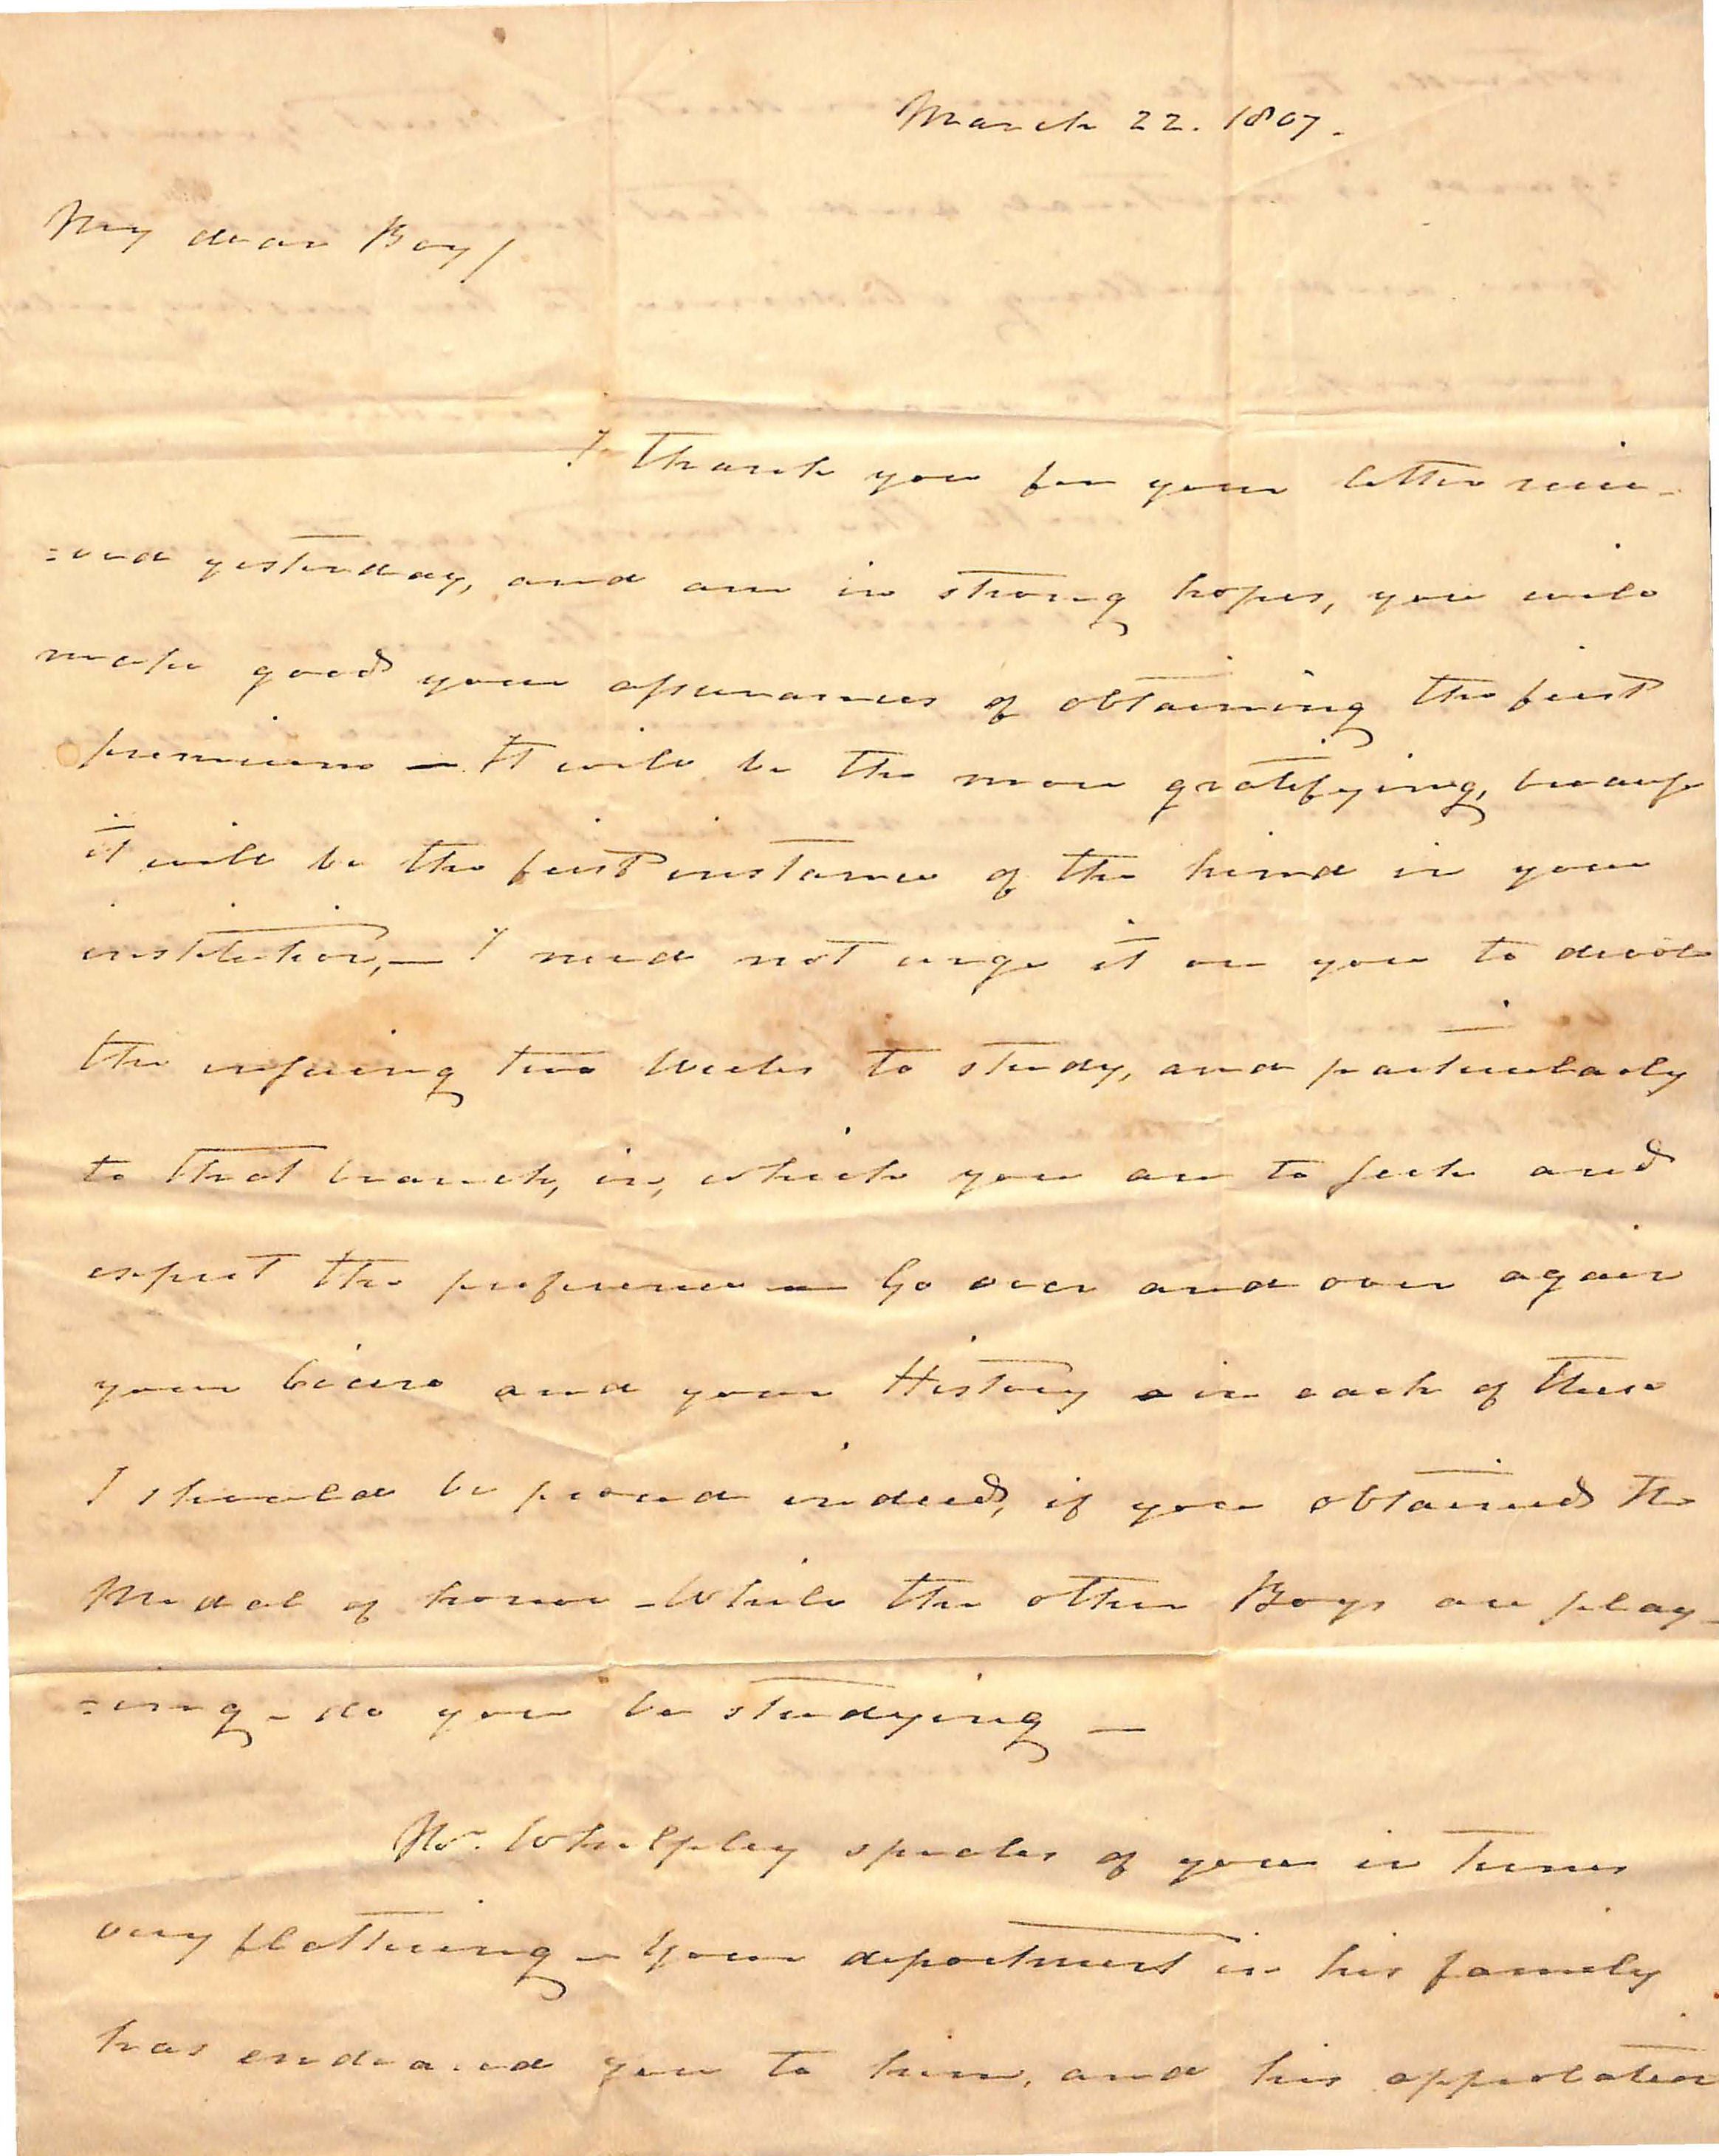 March 22. 1807.
My dear Boy/
I thank you for your letter recei-
=ved yesterday, and am in strong hopes, you will
make good your assurances of obtaining the first
premium — It will be the more gratifying, because
it will be the first instance of the kind in your
institution, — I need not urge it on you to devote
the ensuing two Weeks to study, and particularly
to that branch, in, which you are to seek and
expect the preference — Go over and over again
your Cicero and your History - in each of these
I should be proud indeed, if you obtained the
Medal of honor - While the other Boys are play-
=ing - do you be studying —
Mr. Whelpley speaks of you in terms
very flattering - Your deportment in his family
has endeared you to him, and his approbation